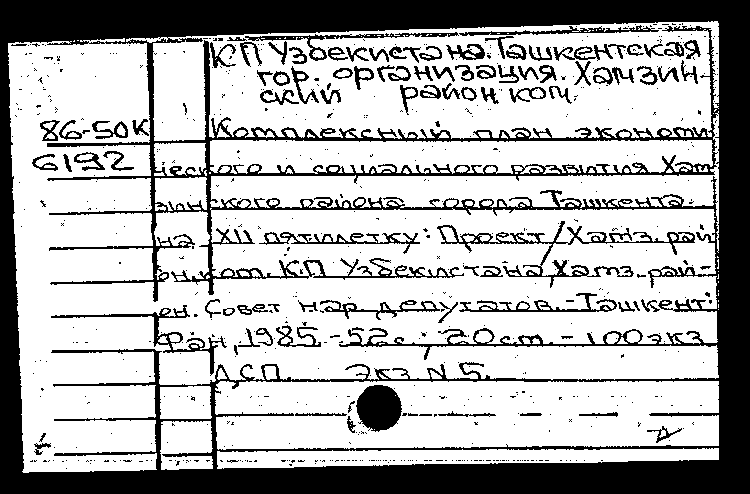 КП Узбекистана. Ташкентская
гор. организация. Хамзин-
ский район. ком.
86-50К Комплексный план экономи
6192 ческого и социального развития Хам
зинского района города Ташкента
на XII пятилетку: Проект/Хамз. рай
он. ком. КП Узбекистана, Хамз. рай-
он. Совет нар депутатов.-Ташкент:
Фан, 1985.-52с.; 20см.-100экз
Д.С.П. Экз N 5.